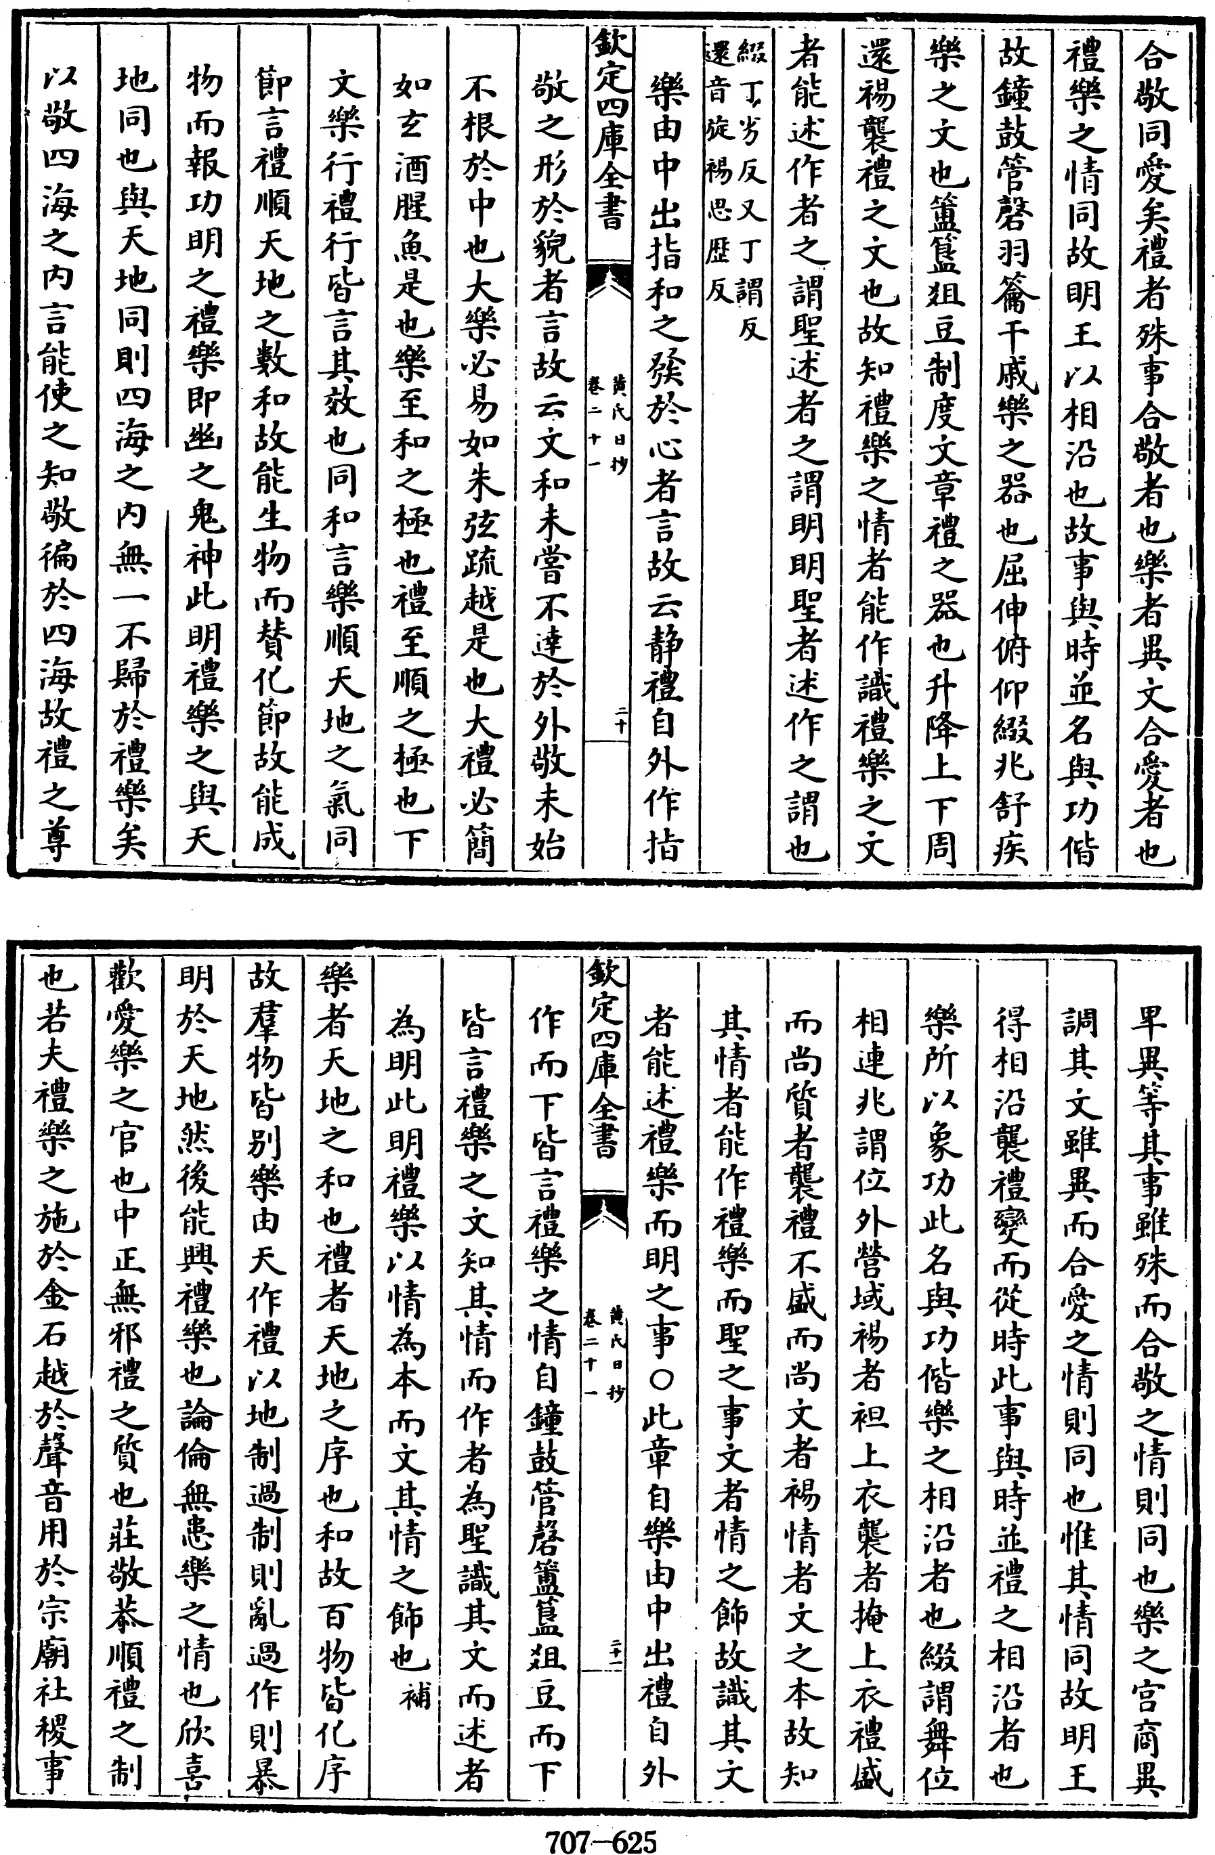 合敬同愛矣禮者殊事合敬者也樂者異文合愛者也
禮樂之情同故明王以相沿也故事與時並名與功偕
故鐘鼓管磬羽籥干戚樂之器也屈伸俯仰綴兆舒疾
樂之文也簠簋俎豆制度文章禮之器也升降上下周
還裼襲禮之文也故知禮樂之情者能作識禮樂之文
者能述作者之謂聖述者之謂明明聖者述作之謂也
綴丁劣反又丁謂反
還音旋裼思歷反
樂由中出指和之發於心者言故云静禮自外作指
欽定四庫全書
黄氏日抄
卷二十一
二十
敬之形於貌者言故云文和未嘗不達於外敬未始
不根於中也大樂必易如朱弦疏越是也大禮必簡
如玄酒腥魚是也樂至和之極也禮至順之極也下
文樂行禮行皆言其效也同和言樂順天地之氣同
節言禮順天地之數和故能生物而賛化節故能成
物而報功明之禮樂即幽之鬼神此明禮樂之與天
地同也與天地同則四海之内無一不歸於禮樂矣
以敬四海之内言能使之知敬徧於四海故禮之尊
卑異等其事雖殊而合敬之情則同也樂之宫商異
調其文雖異而合愛之情則同也惟其情同故明王
得相沿襲禮變而從時此事與時並禮之相沿者也
樂所以象功此名與功偕樂之相沿者也綴謂舞位
相連兆謂位外營域裼者袒上衣襲者掩上衣禮盛
而尚質者襲禮不盛而尚文者裼情者文之本故知
其情者能作禮樂而聖之事文者情之飾故識其文
者能述禮樂而明之事○此章自樂由中出禮自外
欽定四庫全書
黄氏日抄
卷二十一
二十一
作而下皆言禮樂之情自鐘鼓管磬簠簋俎豆而下
皆言禮樂之文知其情而作者為聖識其文而述者
為明此明禮樂以情為本而文其情之飾也補
樂者天地之和也禮者天地之序也和故百物皆化序
故羣物皆别樂由天作禮以地制過制則亂過作則暴
明於天地然後能興禮樂也論倫無患樂之情也欣喜
歡愛樂之官也中正無邪禮之質也莊敬恭順禮之制
也若夫禮樂之施於金石越於聲音用於宗廟社稷事
707-625